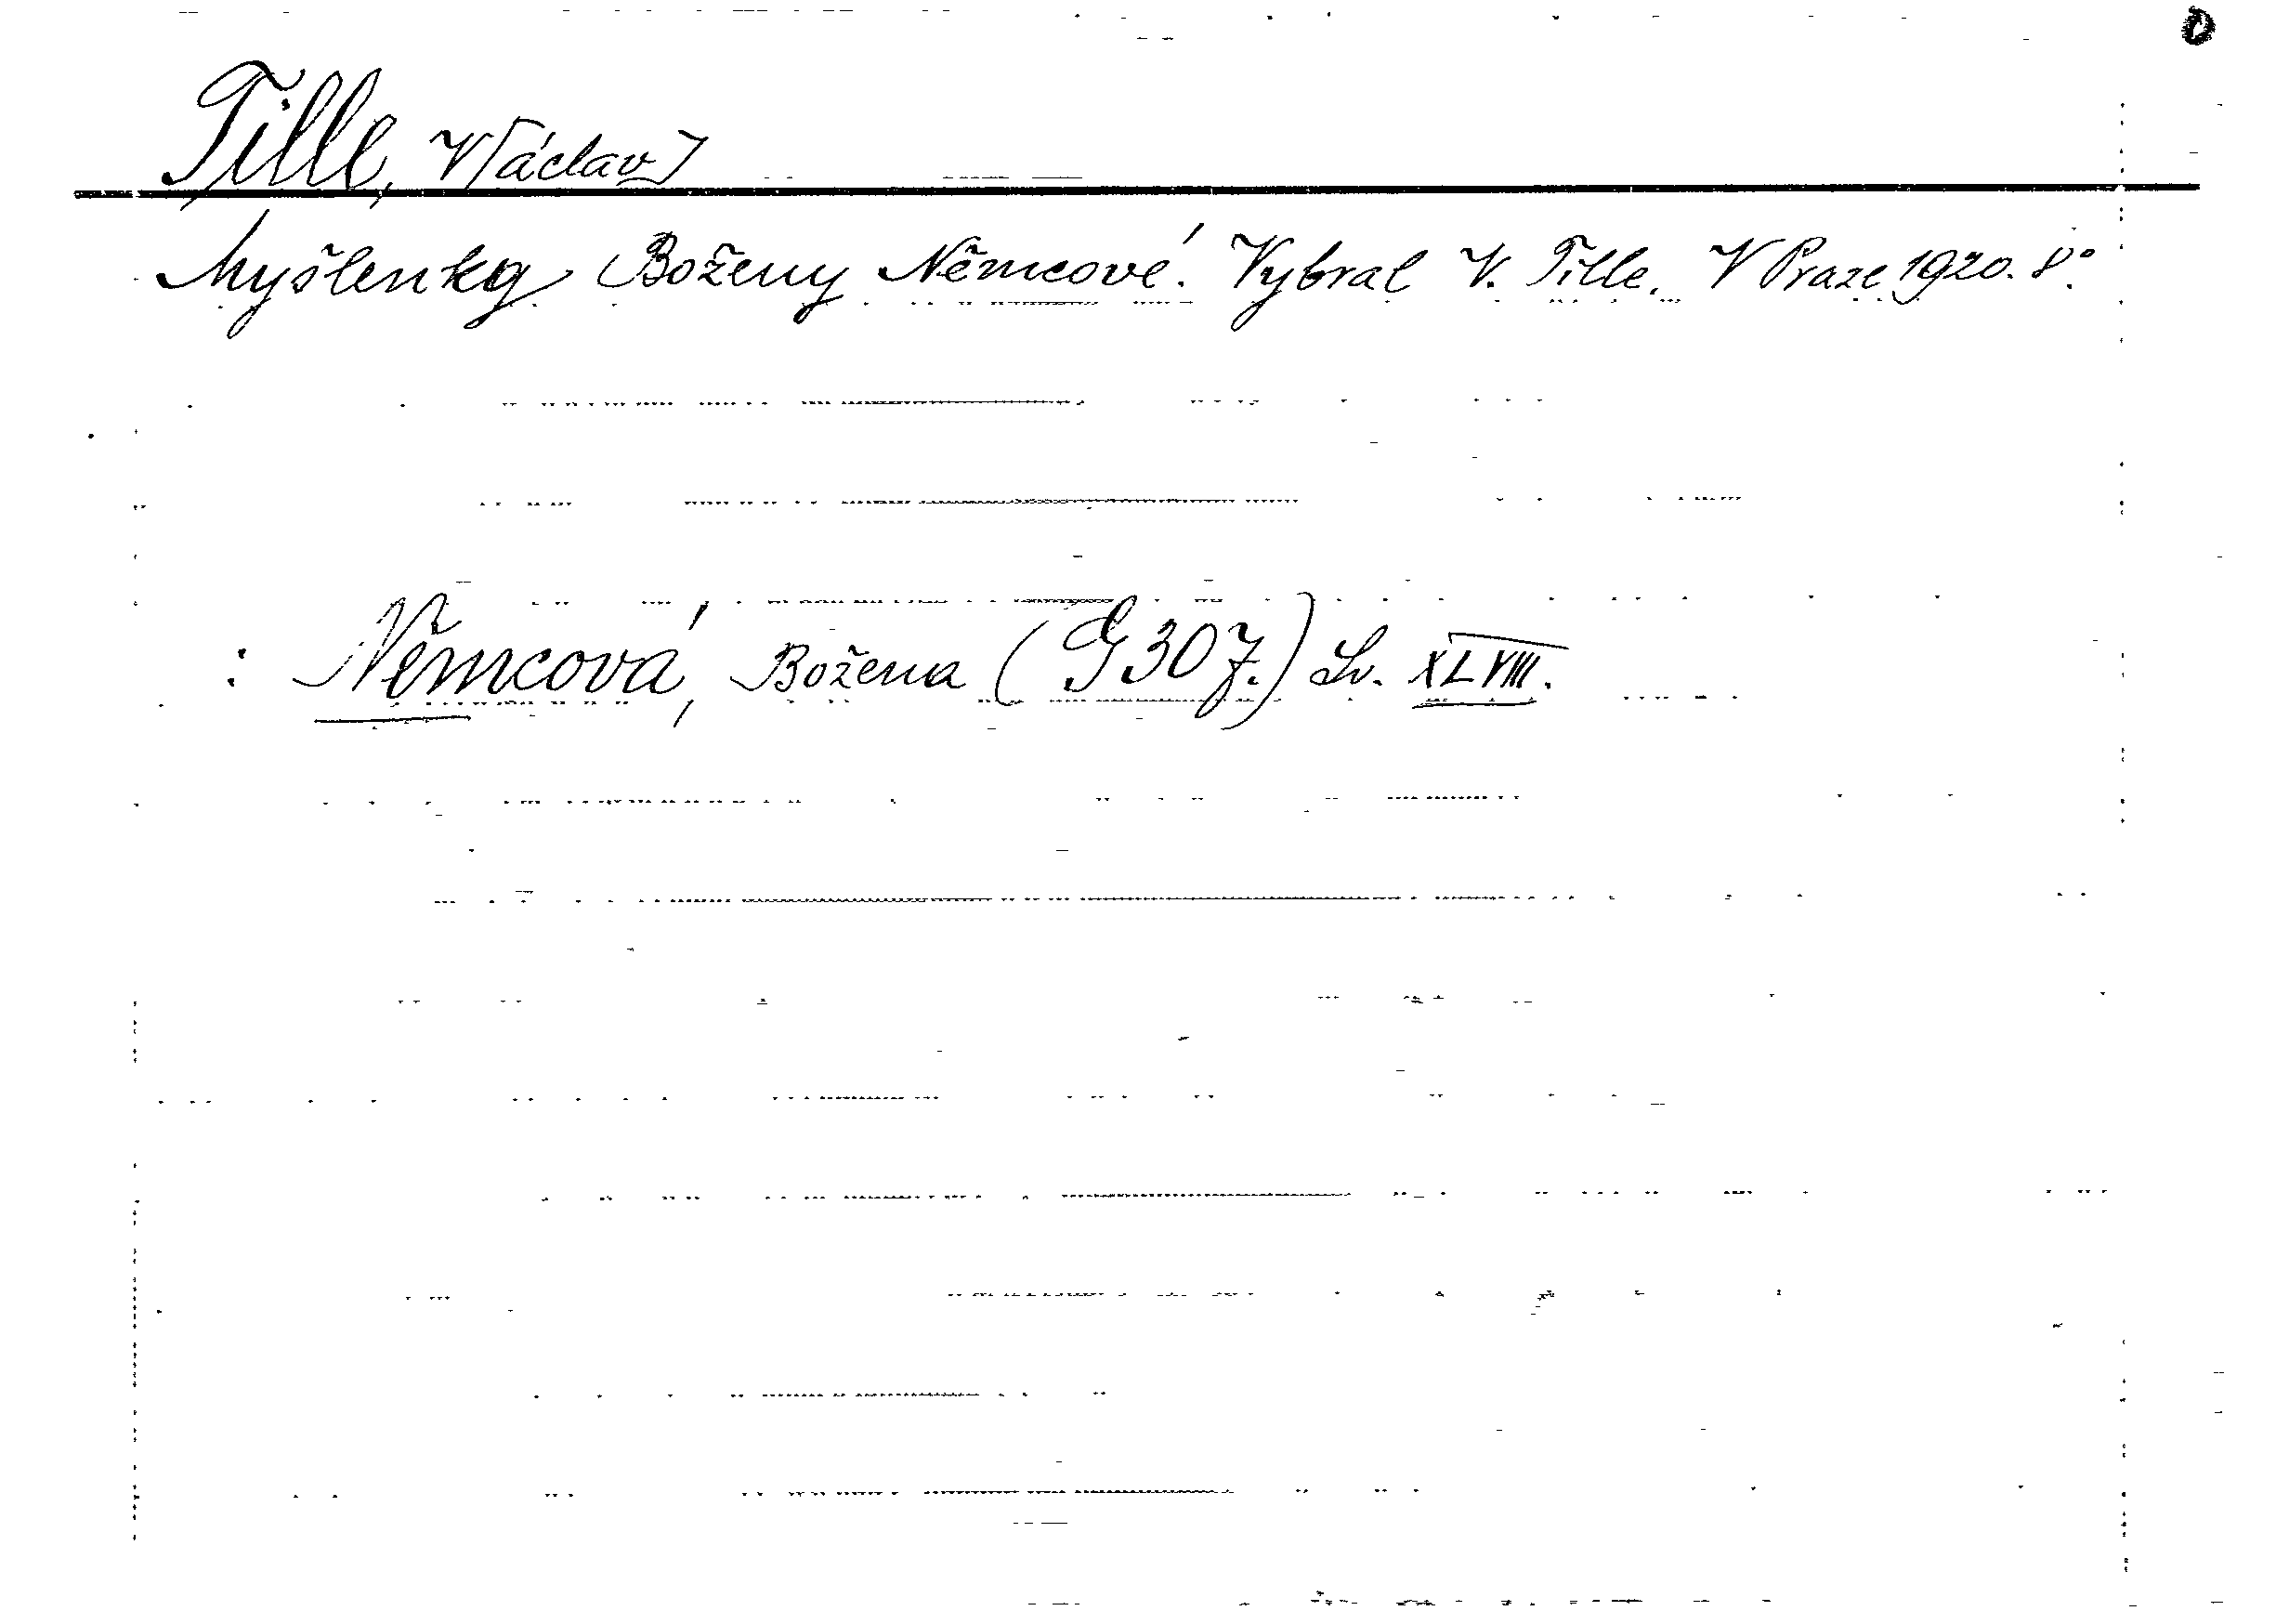 Tille, V[áclav]
Myšlenky Boženy Němcové. Vybral V. Tille. V Praze 1920. 8°.
: Němcová, Božena (G 307.) Sv. XLVIII.